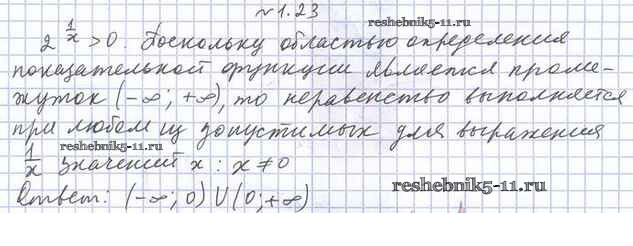 №1.23
reshebnik5-11.ru
2^(1/x) > 0. Поскольку областью определения
показательной функции является проме-
жуток (-∞; +∞), то неравенство выполняется
при любом из допустимых для выражения
1/x значений x : x ≠ 0
Ответ: (-∞; 0) ∪ (0; +∞)
reshebnik5-11.ru